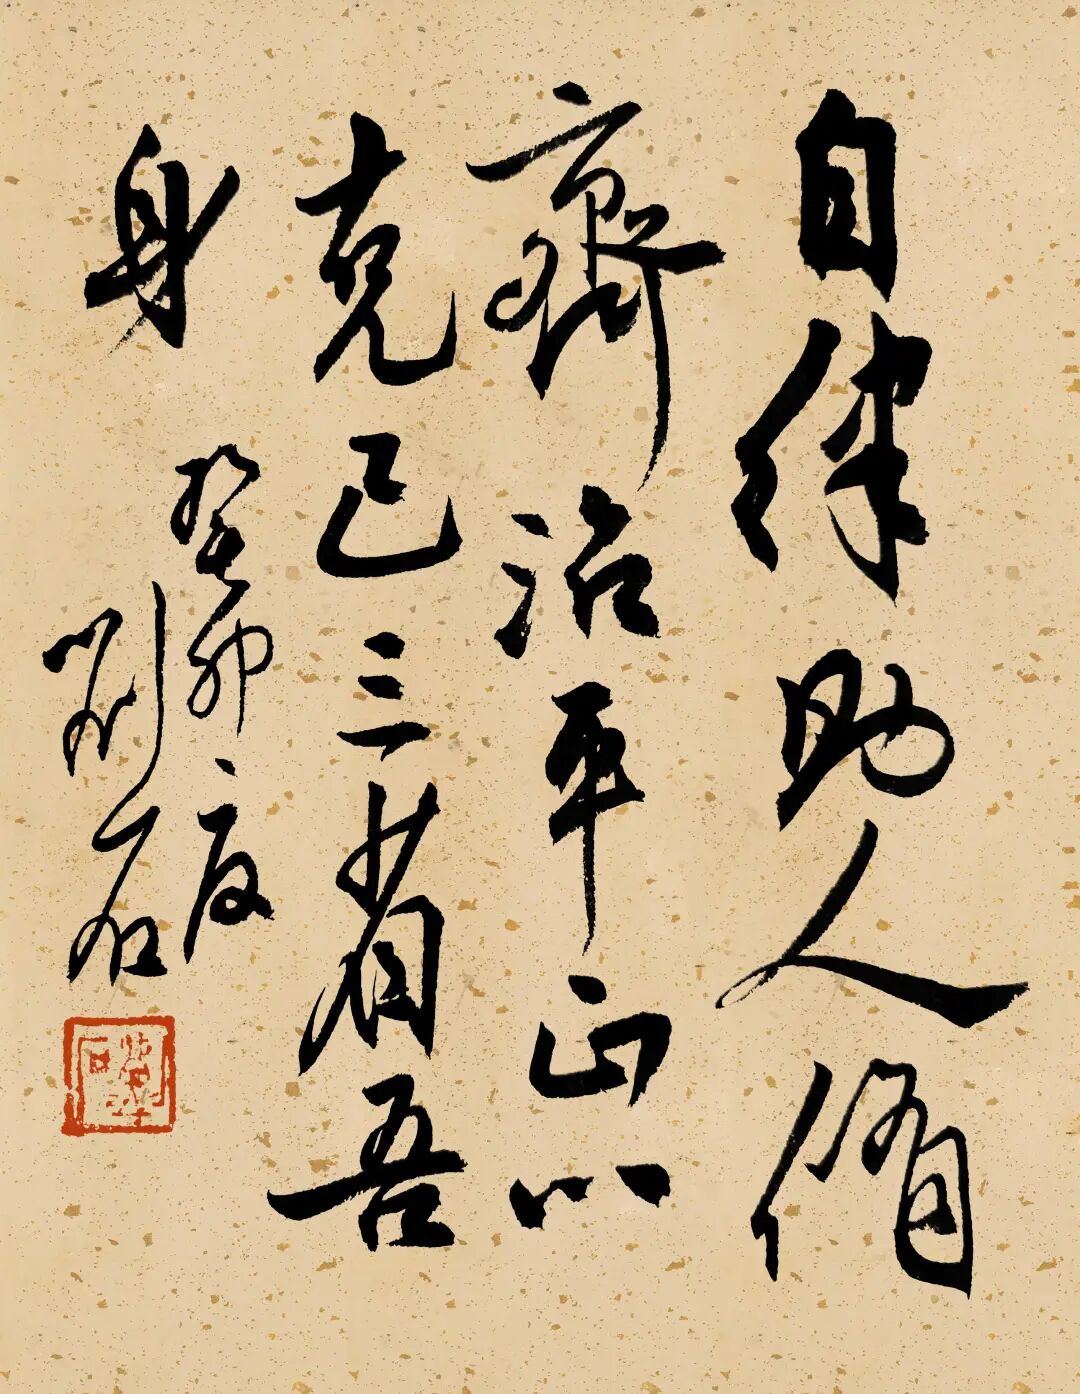 自律助人脩
齊治平正心
克己三省吾
身
癸卯夏
劉石